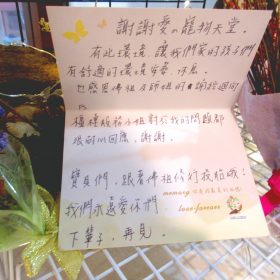 謝謝愛の寵物天堂.
有此環境,讓我們家的孩子們
有舒適的環境安養、休息.
也感恩佛祖及師姐的
樓樓服務小姐對於我的問題都
很耐心回應,謝謝.
寶貝們,跟著佛祖修行放輕哦!
我們永遠愛你們
下輩子,再見.
memory
love~forever